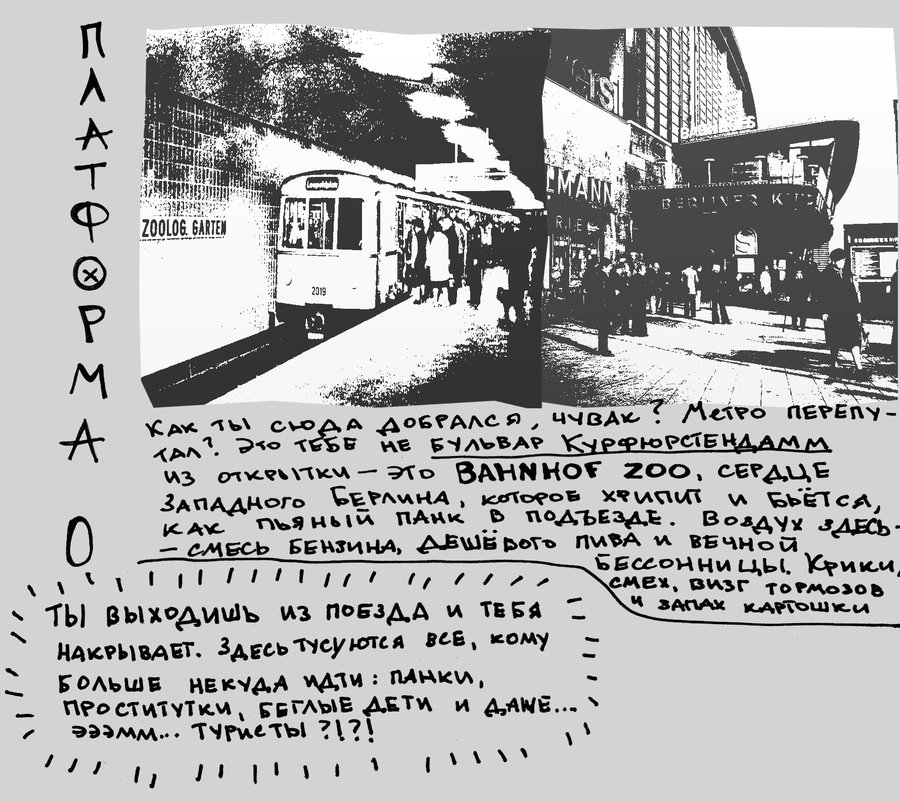 ПЛАТФОРМА 0
ZOOLOG. GARTEN
2019
BERLINER KI
КАК ТЫ СЮДА ДОБРАЛСЯ, ЧУВАК? МЕТРО ПЕРЕПУ-
ТАЛ? ЭТО ТЕБЕ НЕ БУЛЬВАР КУРФЮРСТЕНДАММ
ИЗ ОТКРЫТКИ — ЭТО BAHNHOF ZOO, СЕРДЦЕ
ЗАПАДНОГО БЕРЛИНА, КОТОРОЕ ХРИПИТ И БЬЁТСЯ,
КАК ПЬЯНЫЙ ПАНК В ПОДЪЕЗДЕ. ВОЗДУХ ЗДЕСЬ-
— СМЕСЬ БЕНЗИНА, ДЕШЁВОГО ПИВА И ВЕЧНОЙ
БЕССОННИЦЫ. КРИКИ,
СМЕХ, ВИЗГ ТОРМОЗОВ
И ЗАПАХ КАРТОШКИ
ТЫ ВЫХОДИШЬ ИЗ ПОЕЗДА И ТЕБЯ
НАКРЫВАЕТ. ЗДЕСЬ ТУСУЮТСЯ ВСЕ, КОМУ
БОЛЬШЕ НЕКУДА ИДТИ: ПАНКИ,
ПРОСТИТУТКИ, БЕГЛЫЕ ДЕТИ И ДАЖЕ...
ЭЭЭММ... ТУРИСТЫ?!?!